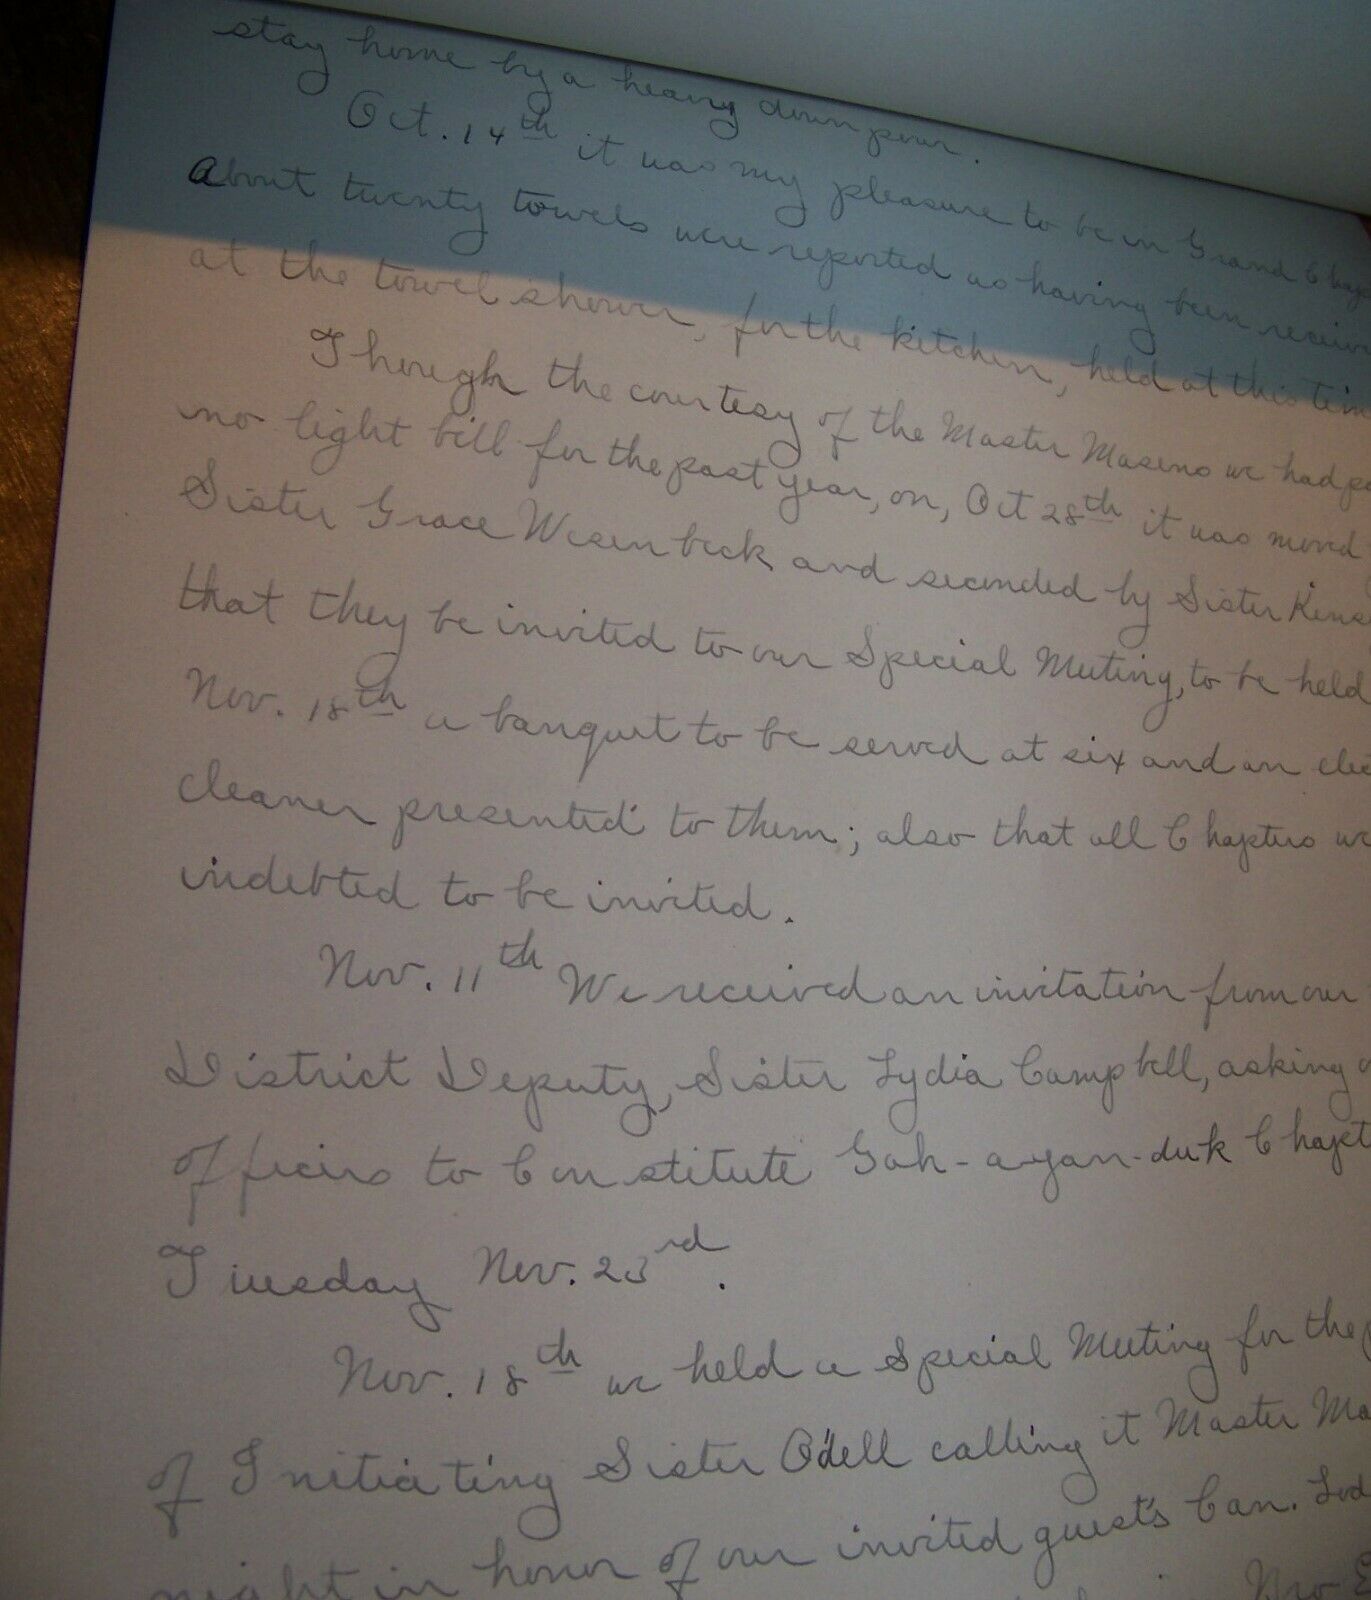 stay home by a heavy down pour.
Oct. 14th it was my pleasure to be in Grand Chap
About twenty towels were reported as having been receiv
at the towel shower, for the kitchen, held at this tim
Through the courtesy of the Master Masons we had pa
no light bill for the past year, on, Oct 28th it was moved
Sister Grace Wesenbeck and seconded by Sister Kins
that they be invited to our Special Meeting, to be held
Nov. 18th a banquet to be served at six and an elec
cleaner presented to them; also that all Chapters we
indebted to be invited.
Nov. 11th We received an invitation from our
District Deputy, Sister Lydia Campbell, asking o
officers to Constitute Gah-a-yan-duk Chapt
Tuesday Nov. 23rd.
Nov. 18th we held a Special Meeting for the p
of Initiating Sister Odell calling it Master Ma
night in honor of our invited guests Can. Lod